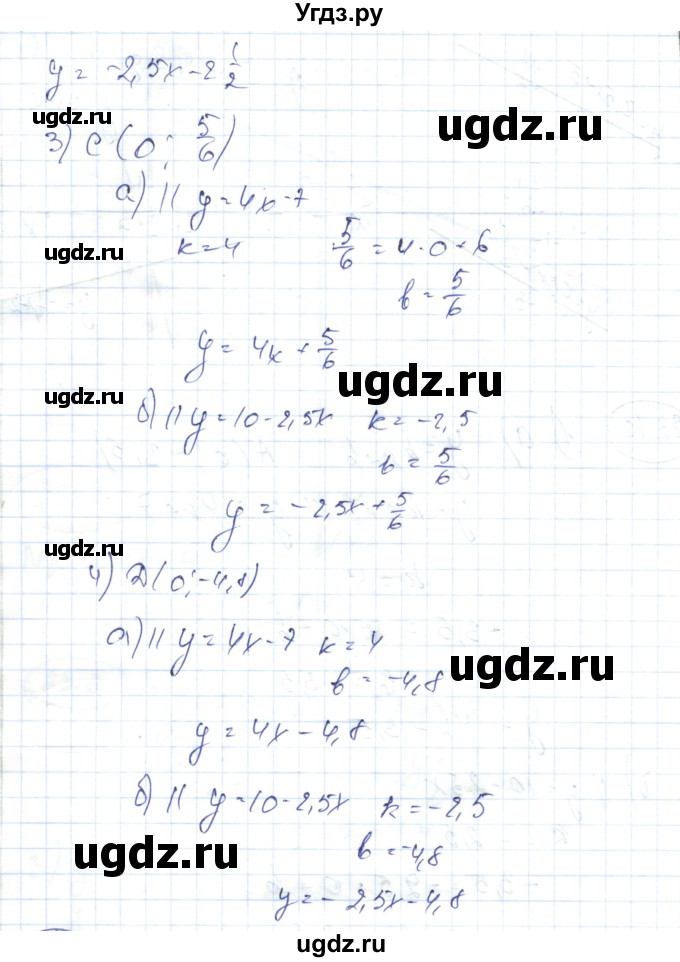 Угдз.ру
y = -2,5x - 2 1/2
ugdz.ru ugdz.ru
3) C (0; 5/6)
a) || y = 4x - 7
ugdz.ru
k = 4 5/6 = 4 · 0 + b
b = 5/6
y = 4x + 5/6
ugdz.ru ugdz.ru
б) || y = 10 - 2,5x k = -2,5
b = 5/6
y = -2,5x + 5/6
ugdz.ru
4) D (0; -4,8)
a) || y = 4x - 7 k = 4
ugdz.ru
b = -4,8
y = 4x - 4,8
б) || y = 10 - 2,5x k = -2,5
ugdz.ru ugdz.ru
b = -4,8
y = -2,5x - 4,8
ugdz.ru